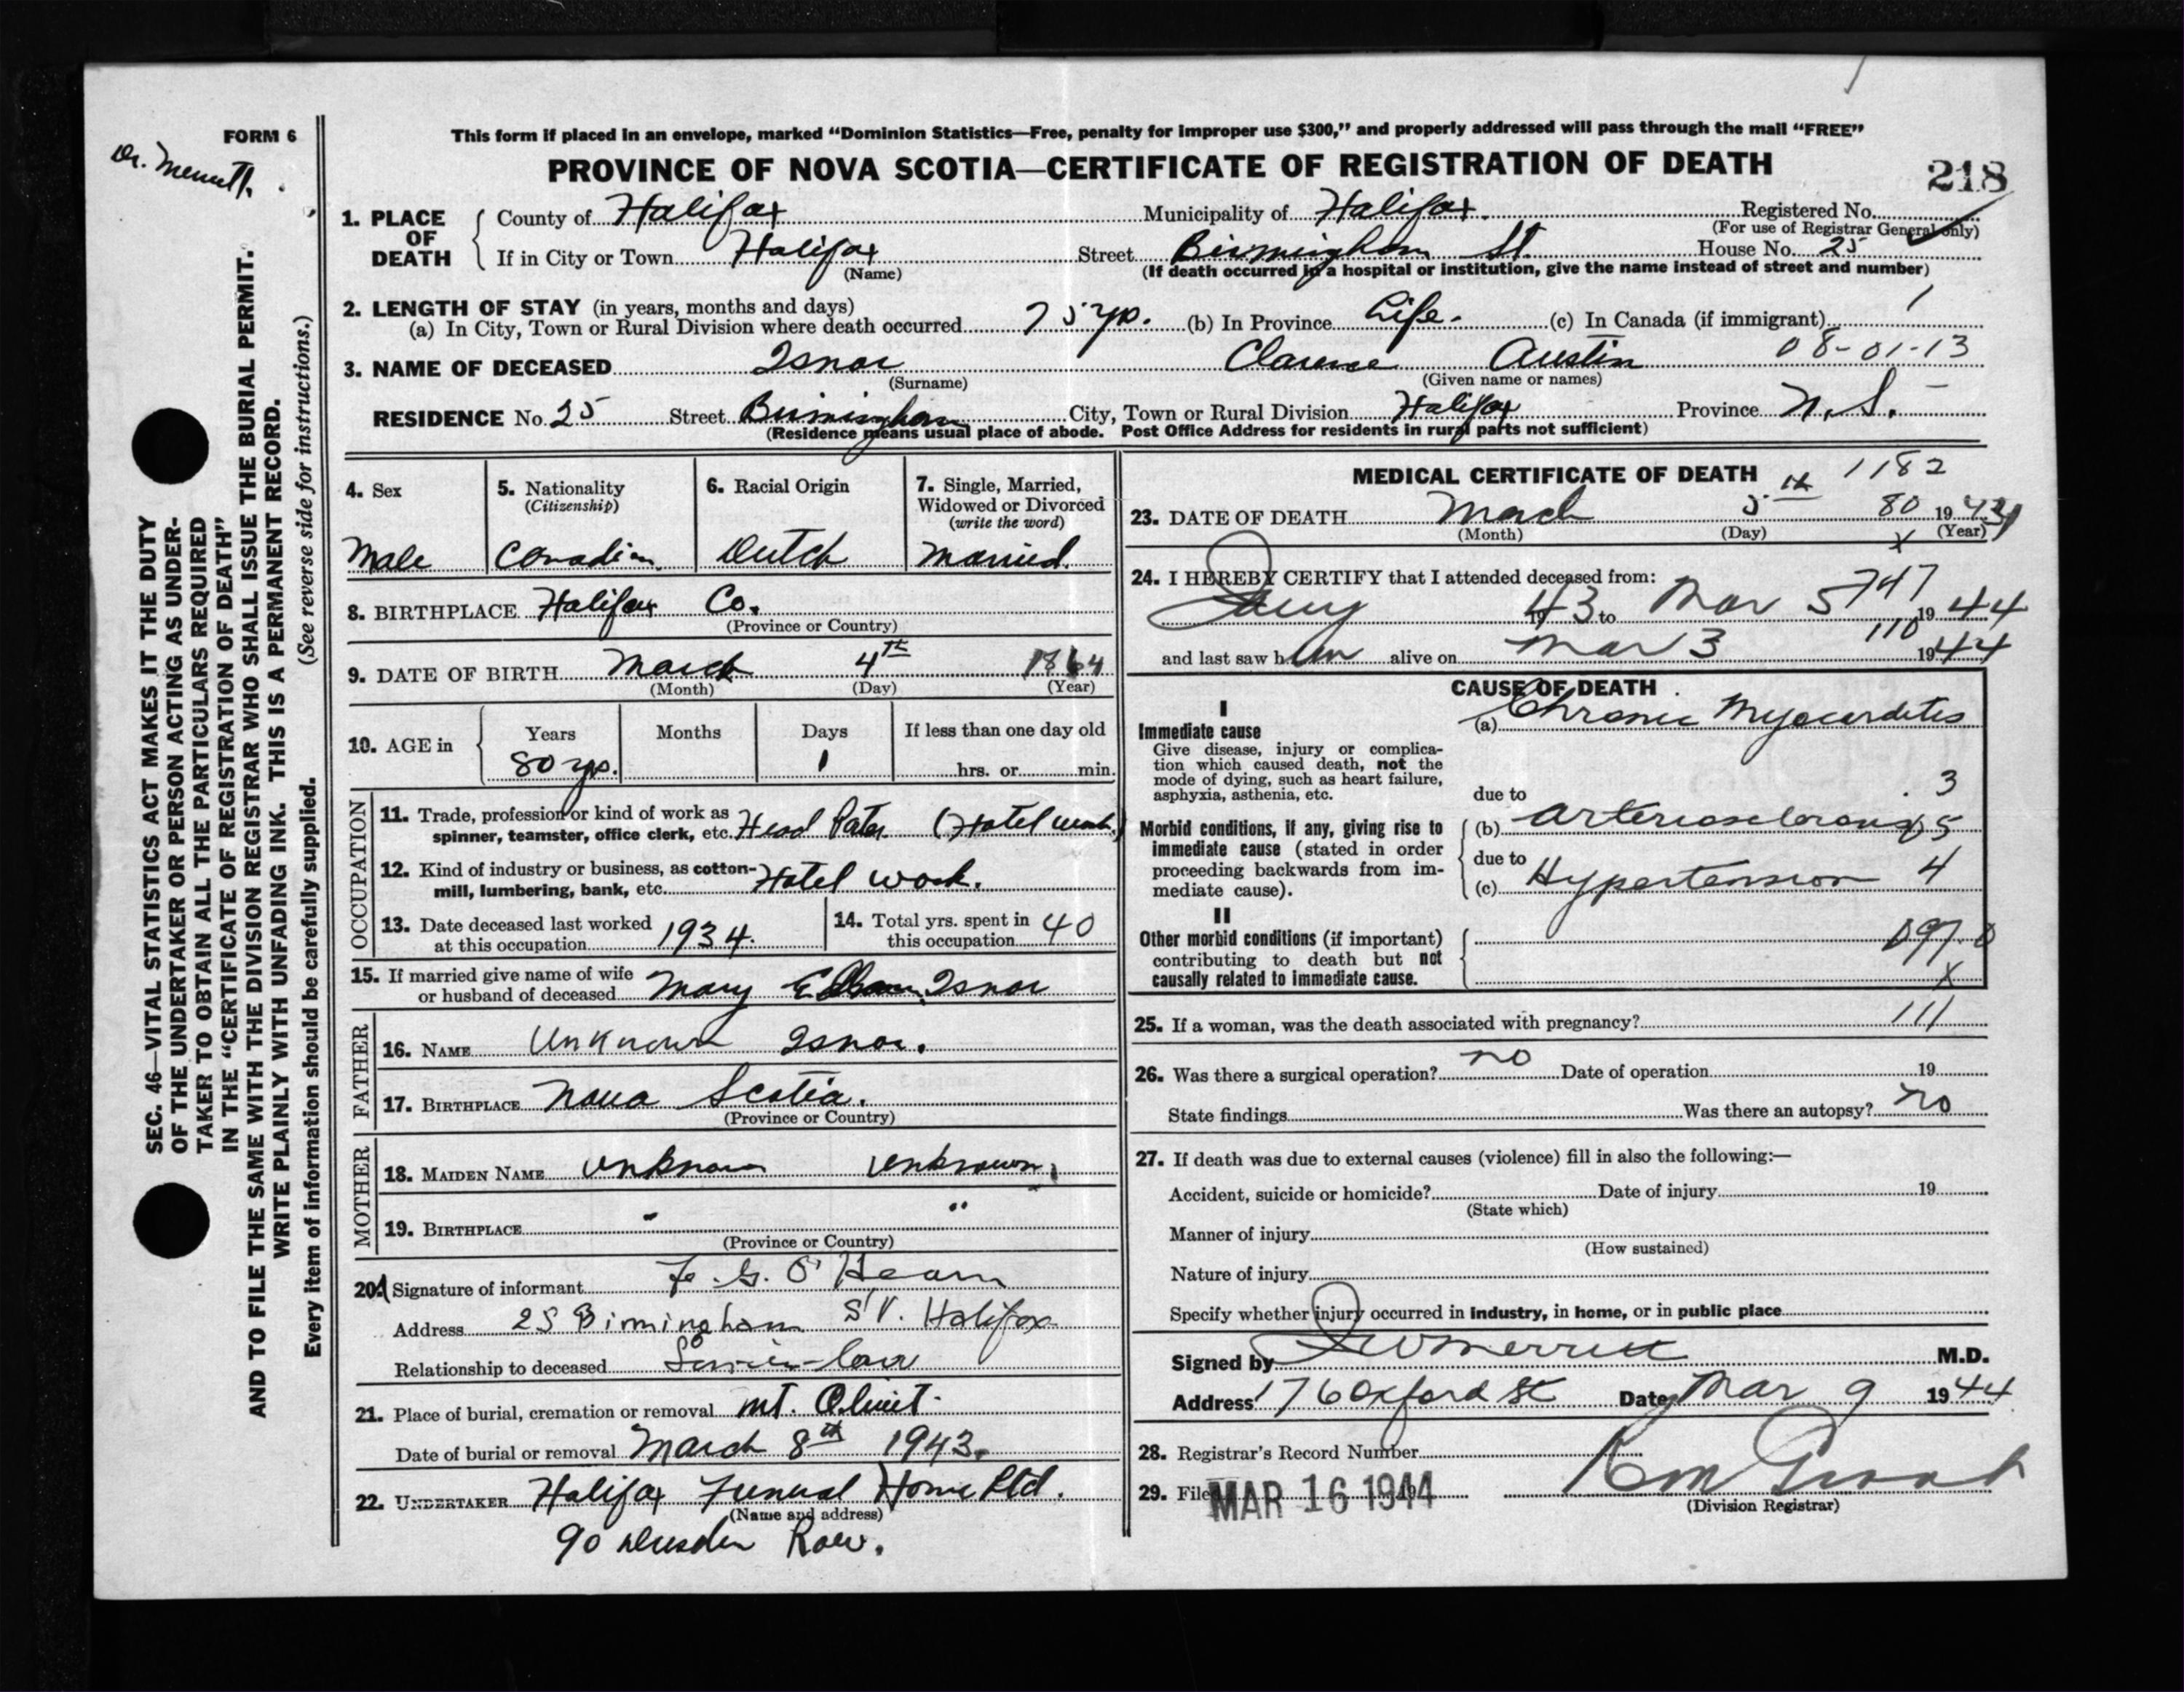 FORM 6
This form if placed in an envelope, marked “Dominion Statistics—Free, penalty for improper use $300,” and properly addressed will pass through the mail “FREE”
PROVINCE OF NOVA SCOTIA—CERTIFICATE OF REGISTRATION OF DEATH
218
1. PLACE OF DEATH
County of Halifax Municipality of Halifax. Registered No.
(For use of Registrar General only)
If in City or Town Halifax Street Birmingham St. House No. 25
(Name) (If death occurred in a hospital or institution, give the name instead of street and number)
2. LENGTH OF STAY (in years, months and days)
(a) In City, Town or Rural Division where death occurred 75 yrs. (b) In Province Life. (c) In Canada (if immigrant)
3. NAME OF DECEASED Isnor Clarence Austin 08-01-13
(Surname) (Given name or names)
RESIDENCE No. 25 Street Birmingham City, Town or Rural Division Halifax Province N.S.
(Residence means usual place of abode. Post Office Address for residents in rural parts not sufficient)
4. Sex
Male
5. Nationality
(Citizenship)
Canadian
6. Racial Origin
Dutch
7. Single, Married,
Widowed or Divorced
(write the word)
Married.
8. BIRTHPLACE Halifax Co.
(Province or Country)
9. DATE OF BIRTH March 4th 1864
(Month) (Day) (Year)
10. AGE in Years Months Days If less than one day old
80 yrs. 1 hrs. or min.
OCCUPATION
11. Trade, profession or kind of work as
spinner, teamster, office clerk, etc. Head (Hotel work)
12. Kind of industry or business, as cotton-
mill, lumbering, bank, etc. Hotel work.
13. Date deceased last worked
at this occupation 1934.
14. Total yrs. spent in
this occupation 40
15. If married give name of wife
or husband of deceased Mary Isnor
FATHER
16. NAME Unknown Isnor.
17. BIRTHPLACE Nova Scotia.
(Province or Country)
MOTHER
18. MAIDEN NAME Unknown Unknown.
19. BIRTHPLACE " "
(Province or Country)
20. Signature of informant F. G. O'Hearn
Address 25 Birmingham St. Halifax
Relationship to deceased Son-in-law
21. Place of burial, cremation or removal Mt. Olivet.
Date of burial or removal March 8th 1943.
22. UNDERTAKER Halifax Funeral Home Ltd.
(Name and address)
90 Dresden Row.
MEDICAL CERTIFICATE OF DEATH
1182
23. DATE OF DEATH March 5th 80 19
(Month) (Day) (Year)
X
24. I HEREBY CERTIFY that I attended deceased from:
747
1943 to Mar 5 1944
110
and last saw him alive on Mar 3 1944
CAUSE OF DEATH
I
Immediate cause
Give disease, injury or complica-
tion which caused death, not the
mode of dying, such as heart failure,
asphyxia, asthenia, etc.
(a) Chronic Myocarditis
due to 3
Morbid conditions, if any, giving rise to
immediate cause (stated in order
proceeding backwards from im-
mediate cause).
(b) Arteriosclerosis 5
due to
(c) Hypertension 4
II
Other morbid conditions (if important)
contributing to death but not
causally related to immediate cause.
097.0
X
25. If a woman, was the death associated with pregnancy? 111
26. Was there a surgical operation? no Date of operation 19
State findings Was there an autopsy? no
27. If death was due to external causes (violence) fill in also the following:—
Accident, suicide or homicide? Date of injury 19
(State which)
Manner of injury
(How sustained)
Nature of injury
Specify whether injury occurred in industry, in home, or in public place
Signed by Merritt M.D.
Address 176 Oxford St Date Mar 9 1944
28. Registrar's Record Number
29. Filed MAR 16 1944
(Division Registrar)
SEC. 46—VITAL STATISTICS ACT MAKES IT THE DUTY
OF THE UNDERTAKER OR PERSON ACTING AS UNDER-
TAKER TO OBTAIN ALL THE PARTICULARS REQUIRED
IN THE “CERTIFICATE OF REGISTRATION OF DEATH”
AND TO FILE THE SAME WITH THE DIVISION REGISTRAR WHO SHALL ISSUE THE BURIAL PERMIT.
WRITE PLAINLY WITH UNFADING INK. THIS IS A PERMANENT RECORD.
Every item of information should be carefully supplied. (See reverse side for instructions.)
Dr. Merritt.